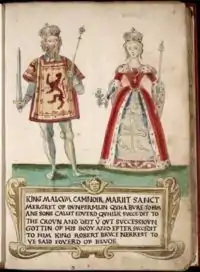 KING MALCUM CAMMOIR MARIIT SANCT
MERGRET OF DUNFERMLIN QUHA BURE TO HIM
ANE SONE CALLIT EDVERD QUHILK SUCCEDIT TO
THE CROUN AND DEIT VYOUT SUCCESSIOUN
GOTTIN OF HIS BODY AND EFTER SUCCEDIT
TO HIM KING ROBERT BRUCE NERREST TO
YE SAID EDVERD OF BLUDE